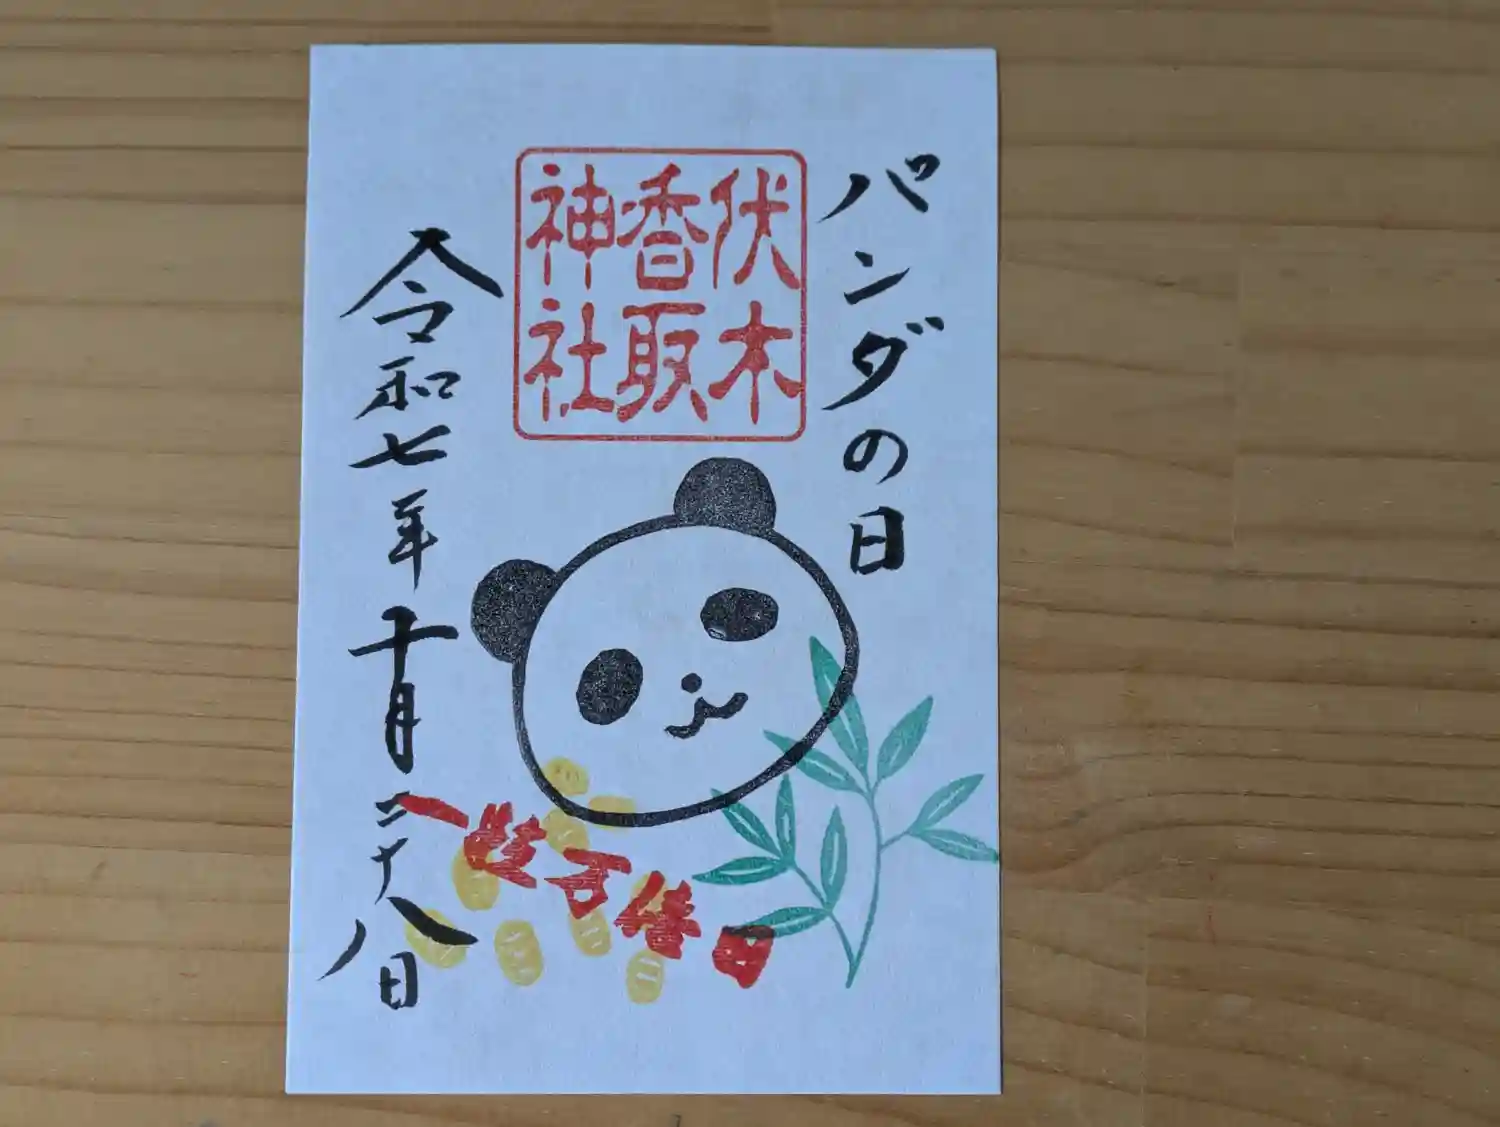 パンダの日
伏木
香取
神社
令和七年十月二十八日
一粒万倍日